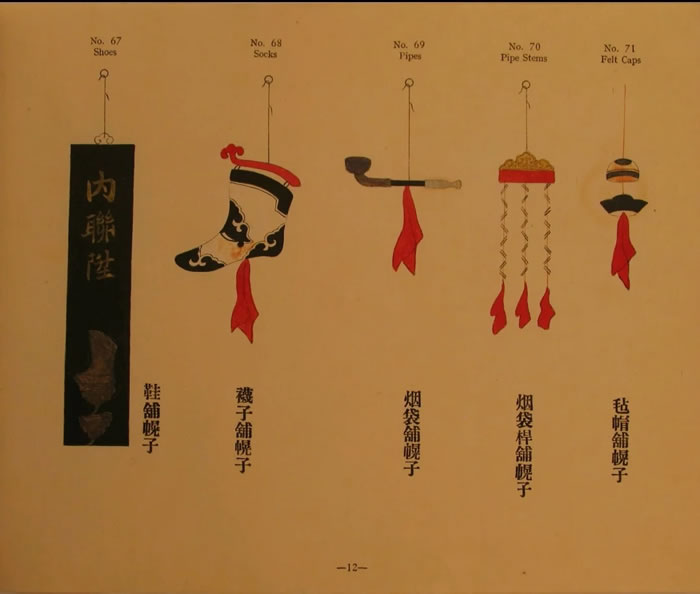 No. 67
Shoes
No. 68
Socks
No. 69
Pipes
No. 70
Pipe Stems
No. 71
Felt Caps
內聯陞
鞋舖幌子
襪子舖幌子
烟袋舖幌子
烟袋桿舖幌子
毡帽舖幌子
—12—